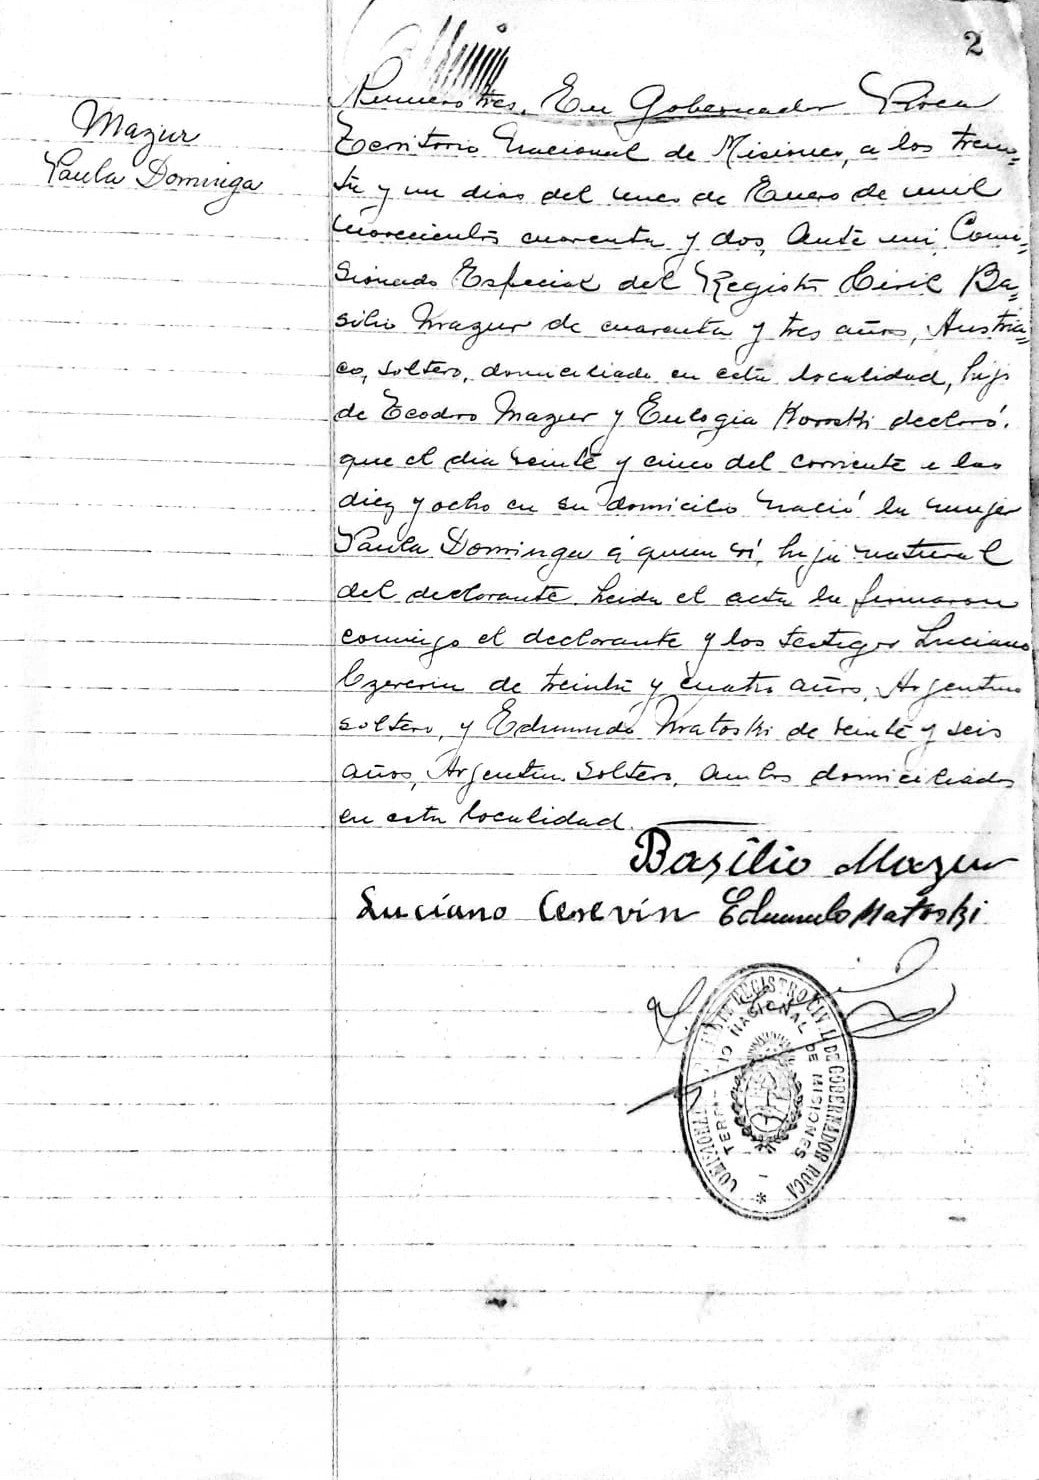 2
Mazur
Paula Dominga
Numero tres. En Gobernador Roca
Territorio Nacional de Misiones, a los trein=
ta y un dias del mes de Enero de mil
novecientos cuarenta y dos, Ante mi, Comi=
sionado Especial del Registro Civil Ba=
silio Mazur de cuarenta y tres años, Austria=
co, soltero, domiciliado en esta localidad, hijo
de Teodoro Mazur y Eulogia declaró:
que el dia veinte y cinco del corriente a las
diez y ocho en su domicilio nació la mujer
Paula Dominga á quien ví, hija natural
del declarante. Leida el acta la firmaron
conmigo el declarante y los testigos Luciano
de treinta y cuatro años, Argentino
soltero, y Edmundo Matoski de veinte y seis
años, Argentino soltero, ambos domiciliados
en esta localidad.
Basilio Mazur
Luciano Cerevin Edmundo Matoski
REGISTRO CIVIL DE GOBERNADOR ROCA
TERRITORIO NACIONAL DE MISIONES